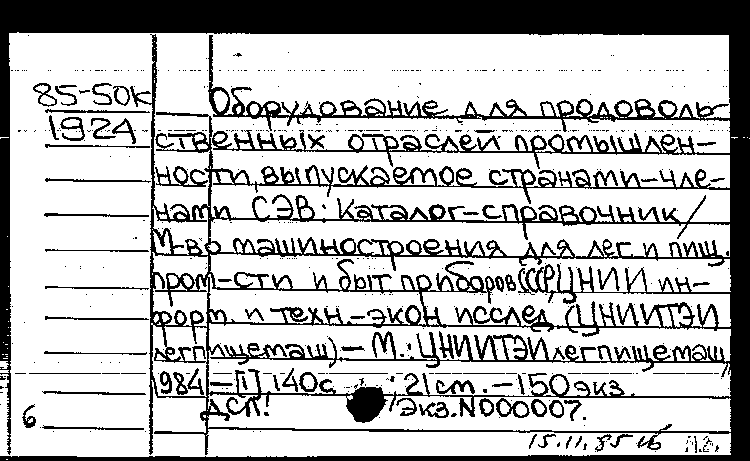 85-50к
1924
Оборудование для продоволь-
ственных отраслей промышлен-
ности, выпускаемое странами-чле-
нами СЭВ: Каталог-справочник /
М-во машиностроения для лег. и пищ.
пром-сти и быт приборов СССР, ЦНИИ ин-
форм. и техн.-экон исслед. (ЦНИИТЭИ
легпищемаш) – М.: ЦНИИТЭИлегпищемаш,
1984 – [1] 140с. ; 21 см. – 150 экз.
ДСП! Экз. N000007.
6
15.11.85